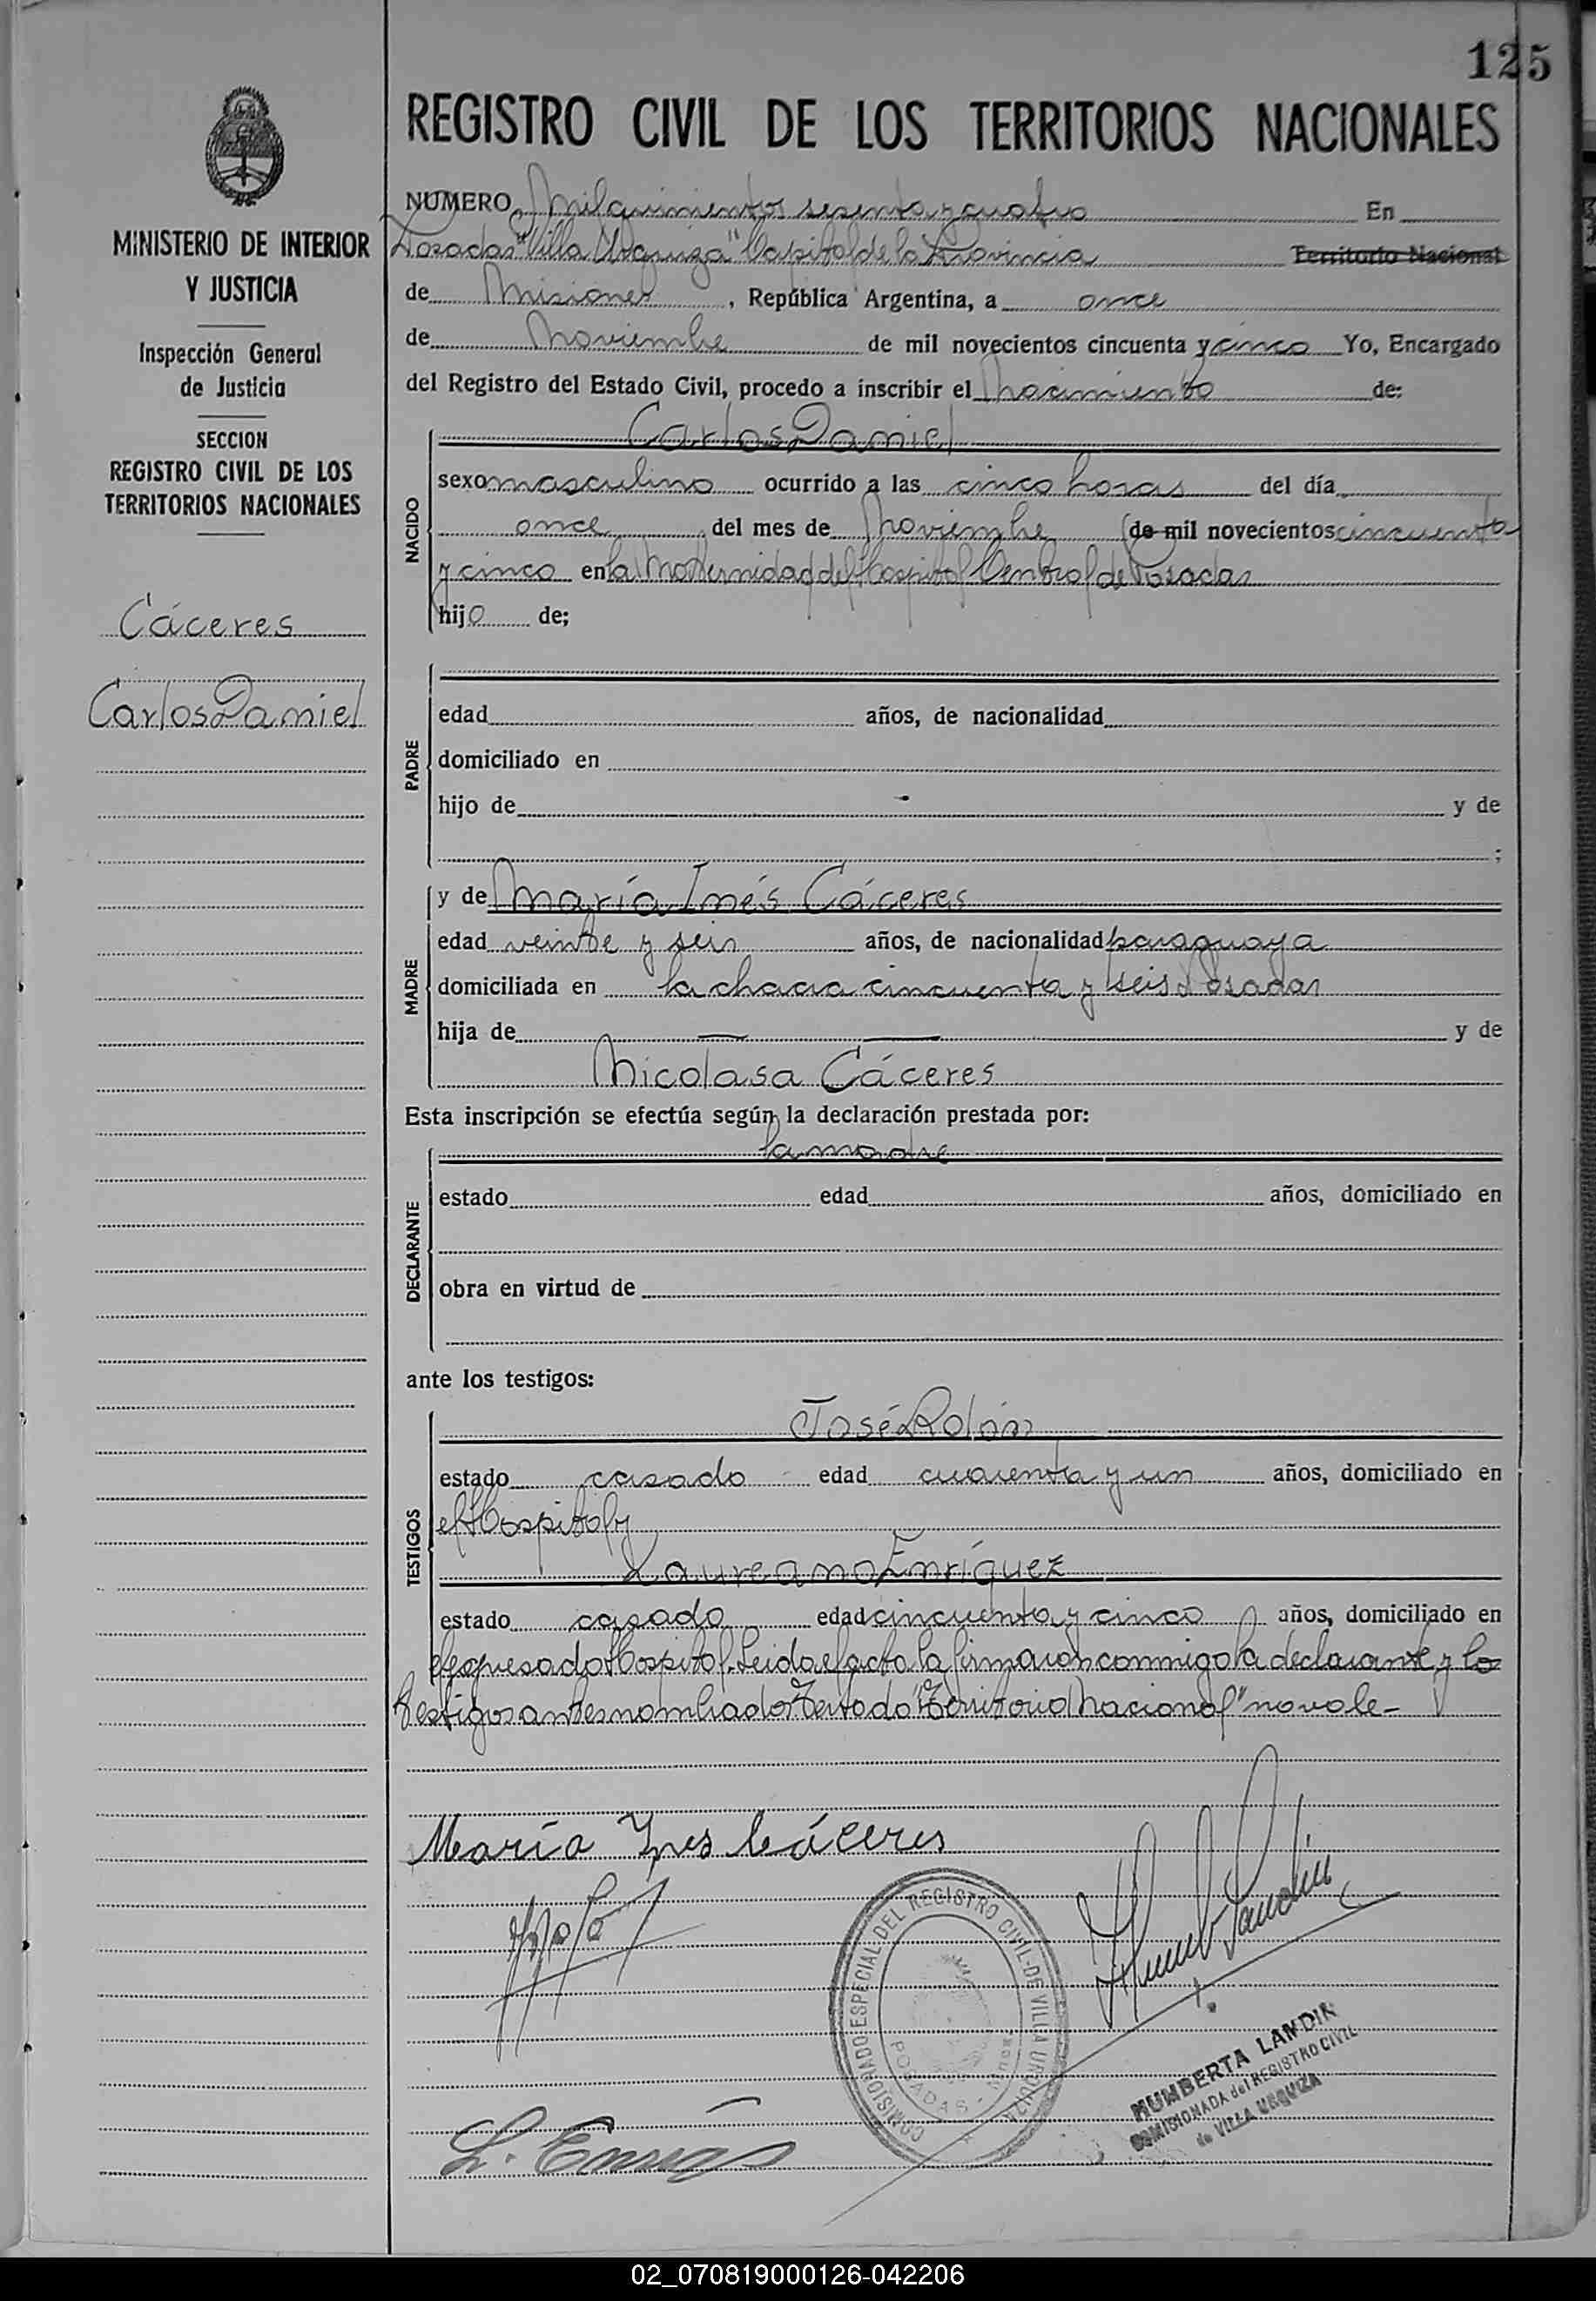 125
REGISTRO CIVIL DE LOS TERRITORIOS NACIONALES
NUMERO Mil quinientos sesenta y cuatro En
Posadas "Villa Urquiza" Capital de la Provincia Territorio Nacional
de Misiones, República Argentina, a once
de Noviembre de mil novecientos cincuenta y cinco Yo, Encargado
del Registro del Estado Civil, procedo a inscribir el Nacimiento de:
MINISTERIO DE INTERIOR
Y JUSTICIA
Inspección General
de Justicia
SECCION
REGISTRO CIVIL DE LOS
TERRITORIOS NACIONALES
Cáceres
Carlos Daniel
NACIDO
Carlos Daniel
sexo masculino ocurrido a las cinco horas del día
once del mes de Noviembre de mil novecientos cincuenta
y cinco en la Maternidad del Hospital Central de Posadas
hijo de;
PADRE
edad años, de nacionalidad
domiciliado en
hijo de y de
;
MADRE
y de María Inés Cáceres
edad veinte y seis años, de nacionalidad paraguaya
domiciliada en la chacra cincuenta y seis Posadas
hija de y de
Nicolasa Cáceres
Esta inscripción se efectúa según la declaración prestada por:
DECLARANTE
la madre
estado edad años, domiciliado en
obra en virtud de
ante los testigos:
TESTIGOS
José Rolón
estado casado edad cuarenta y un años, domiciliado en
el Hospital y
Laureano Enríquez
estado casado edad cincuenta y cinco años, domiciliado en
el expresado Hospital. Leida el acta la firmaron conmigo la declarante y lo
testigos antes nombrados Testado "Territorio Nacional" no vale-
María Ynes Cáceres
COMISIONADO ESPECIAL DEL REGISTRO CIVIL DE VILLA URQUIZA
POSADAS - Mnes.
HUMBERTA LANDIN
COMISIONADA del REGISTRO CIVIL
de VILLA URQUIZA
02_070819000126-042206